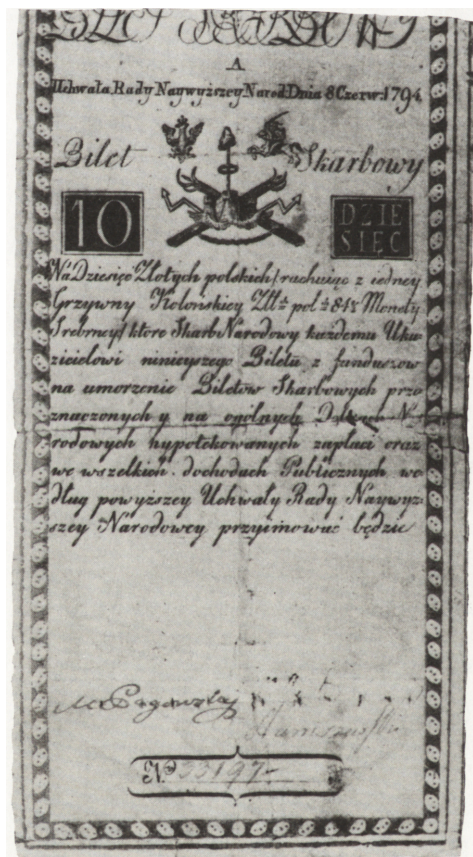 A
Uchwała Rady Naywyższey Narod: Dnia 8 Czerw: 1794
Bilet Skarbowy
10 DZIE
SIĘĆ
Na Dziesięć Złotych polskich / rachuiąc z iedney
Grzywny Kolońskiey Złł: pol: 84½ Monety
Srebrney / które Skarb Narodowy każdemu Uka-
zicielowi ninieyszego Biletu z funduszow
na umorzenie Biletów Skarbowych prze
znaczonych y na ogólnych Na-
rodowych hypotekowanych zapłaci oraz
we wszelkich dochodach Publicznych we
dług powyzszey Uchwały Rady Naywyż-
szey Narodowey przyimować będzie
No 33197